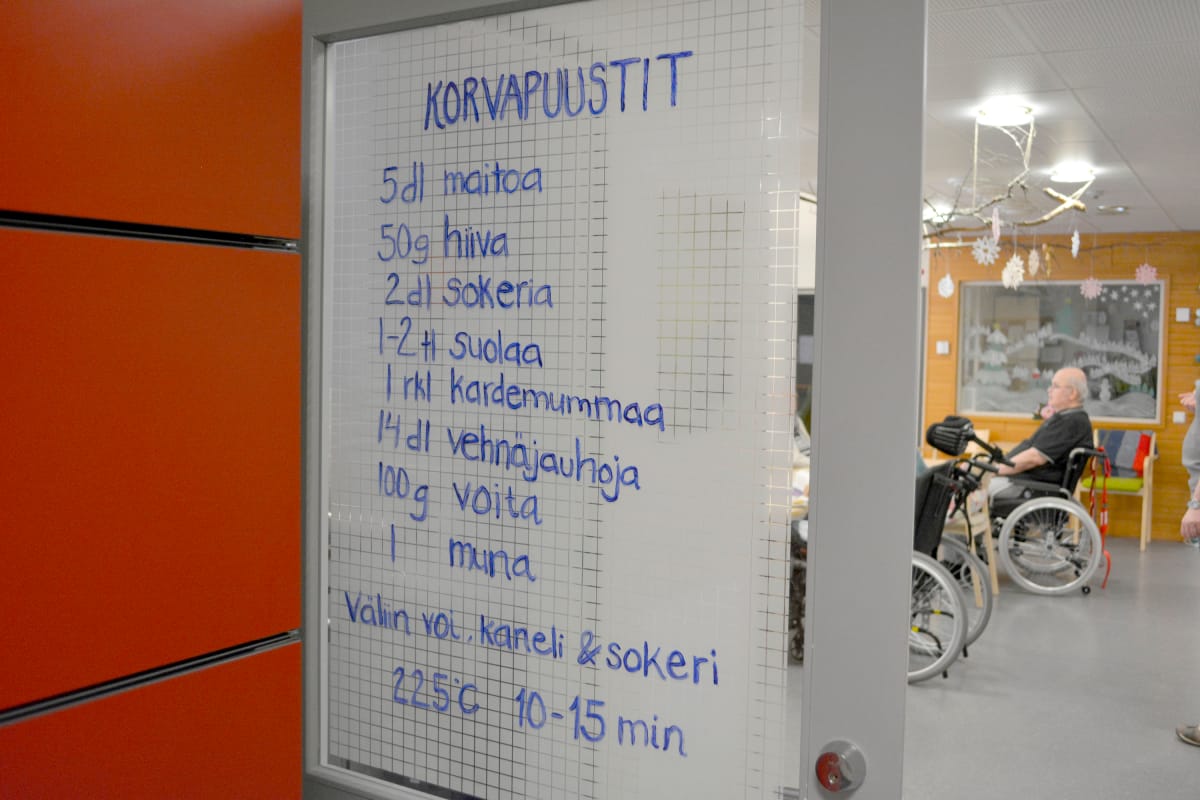 KORVAPUUSTIT
5dl maitoa
50g hiiva
2 dl sokeria
1-2 tl suolaa
1 rkl kardemummaa
14 dl vehnäjauhoja
100g voita
1 muna
Väliin voi, kaneli & sokeri
225°C 10-15 min